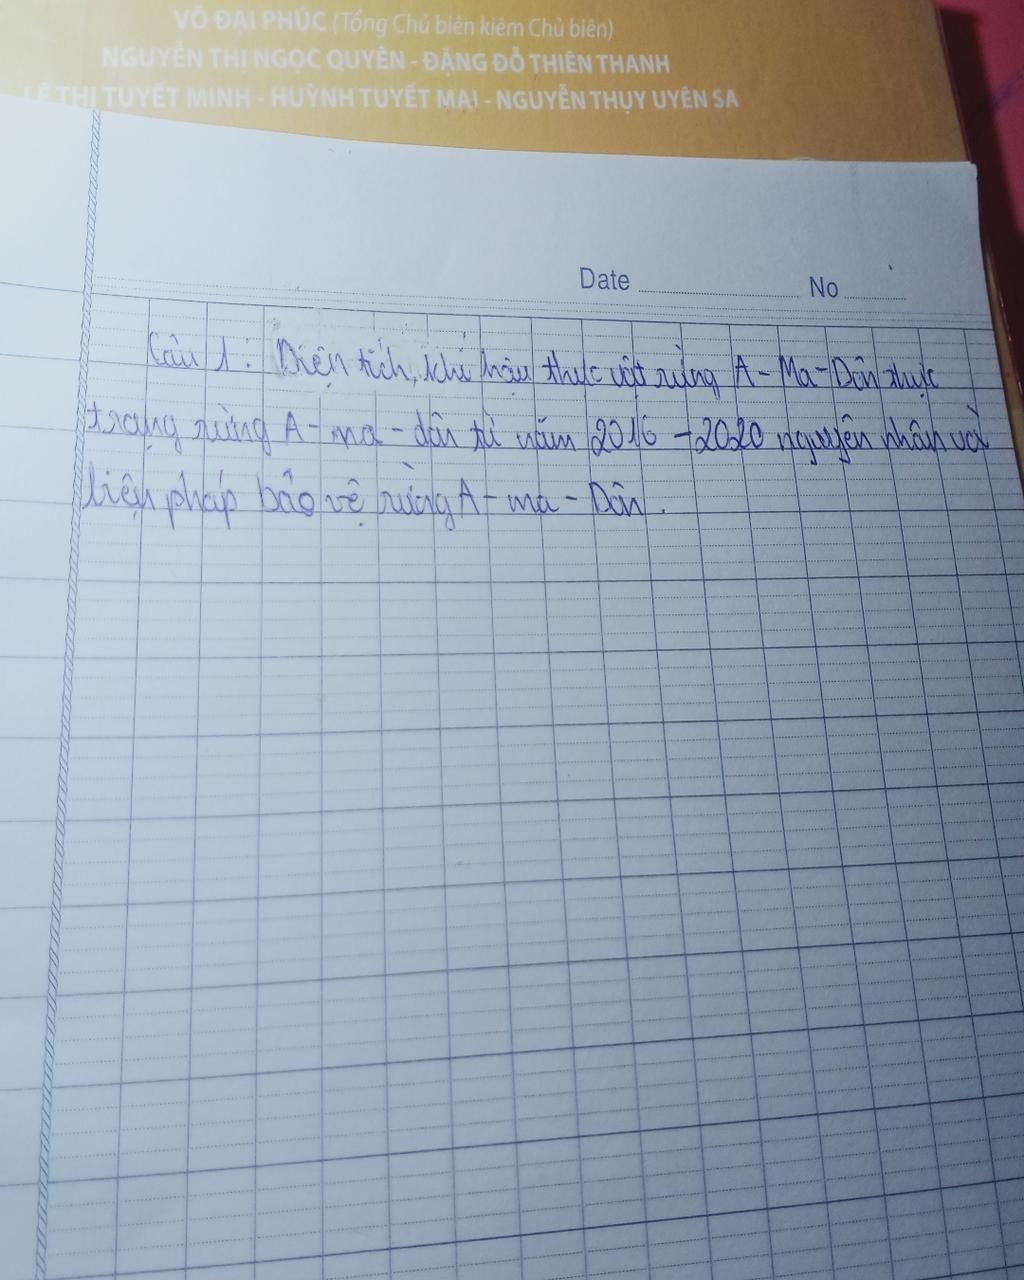 VÕ ĐẠI PHÚC (Tổng Chủ biên kiêm Chủ biên)
NGUYỄN THỊ NGỌC QUYÊN - ĐẶNG ĐỖ THIÊN THANH
LÊ THỊ TUYẾT MINH - HUỲNH TUYẾT MAI - NGUYỄN THỤY UYÊN SA
Date No
Câu 1: Diện tích, khí hậu thực vật rừng A-Ma-Dôn thực
trạng rừng A-ma-dôn từ năm 2016-2020 nguyên nhân và
biện pháp bảo vệ rừng A-ma-Dôn.